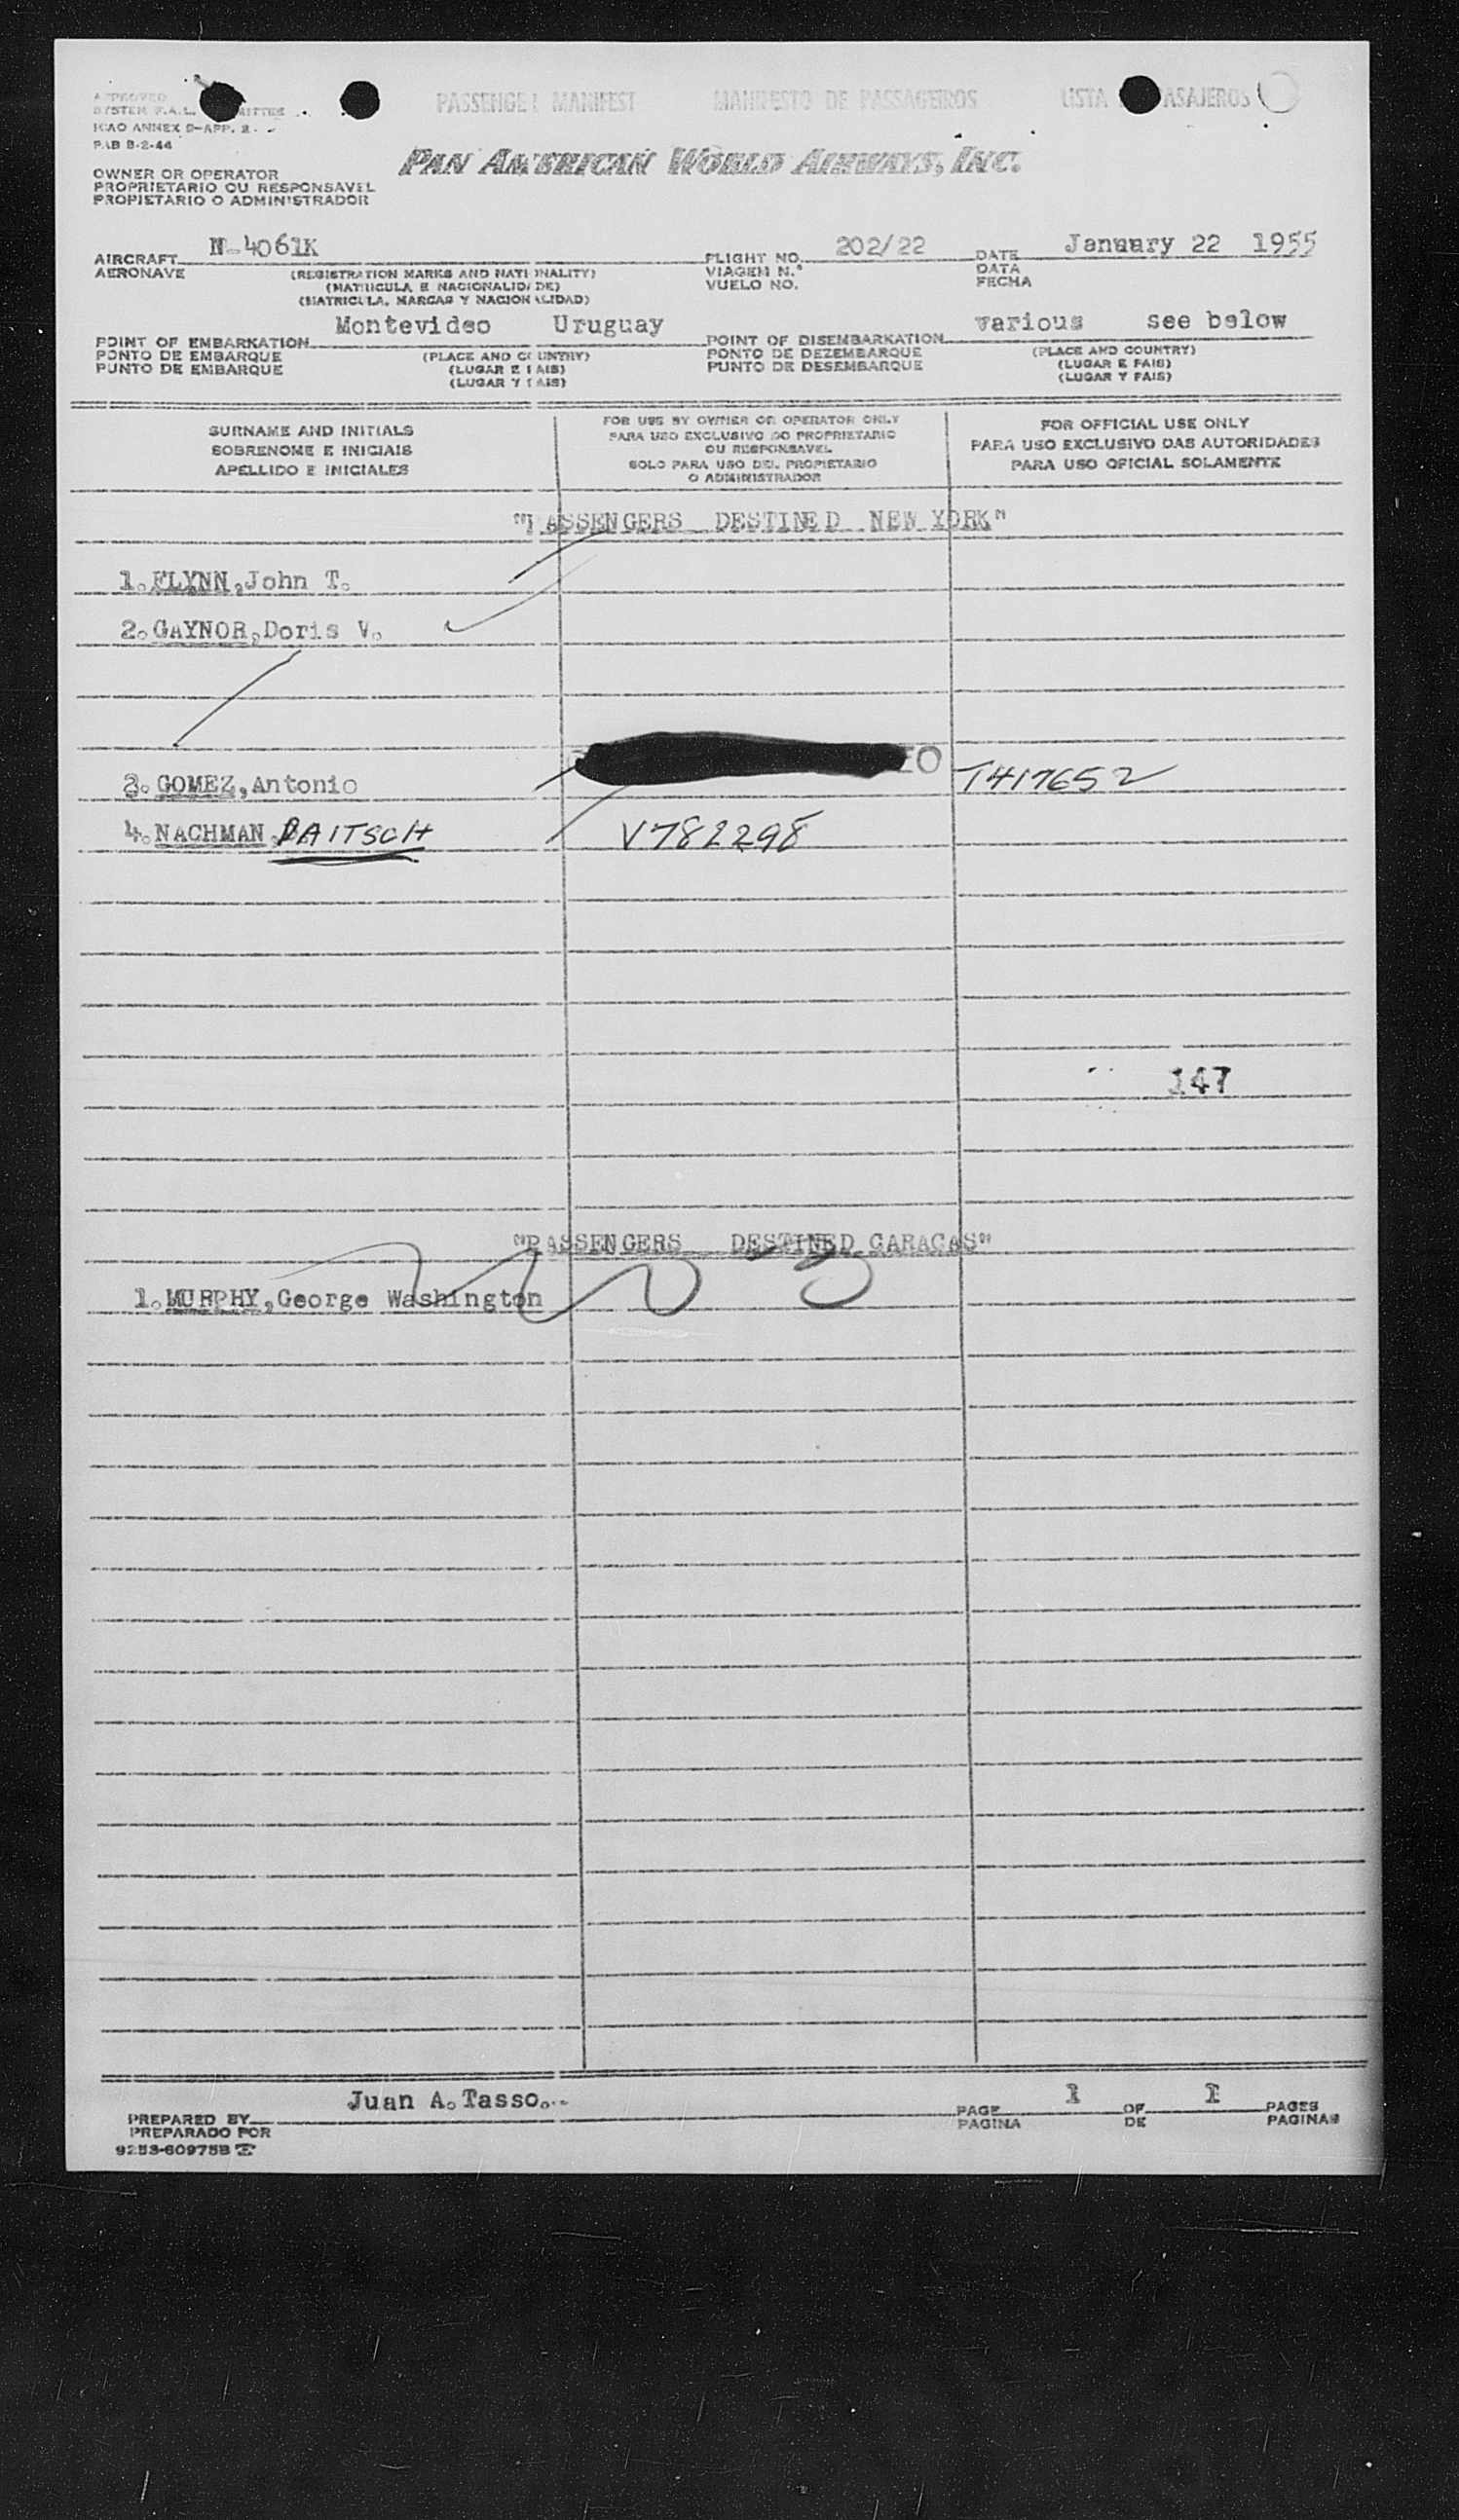 APPROVED PASSENGER MANIFEST MANIFESTO DE PASSAGEIROS LISTA PASAJEROS
SYSTEM F.A.L.
ICAO ANNEX 9-APP. 2
PAB B-2-44
PAN AMERICAN WORLD AIRWAYS, INC.
OWNER OR OPERATOR
PROPRIETARIO OU RESPONSAVEL
PROPIETARIO O ADMINISTRADOR
AIRCRAFT N-4061K FLIGHT NO. 202/22 DATE January 22 1955
AERONAVE (REGISTRATION MARKS AND NATIONALITY) VIAGEM N.º DATA
(MATRICULA E NACIONALIDADE) VUELO NO. FECHA
(MATRICULA, MARCAS Y NACIONALIDAD)
POINT OF EMBARKATION Montevideo Uruguay POINT OF DISEMBARKATION various see below
PONTO DE EMBARQUE (PLACE AND COUNTRY) PONTO DE DEZEMBARQUE (PLACE AND COUNTRY)
PUNTO DE EMBARQUE (LUGAR E PAIS) PUNTO DE DESEMBARQUE (LUGAR E PAIS)
(LUGAR Y PAIS) (LUGAR Y PAIS)
SURNAME AND INITIALS FOR USE BY OWNER OR OPERATOR ONLY FOR OFFICIAL USE ONLY
SOBRENOME E INICIAIS PARA USO EXCLUSIVO DO PROPRIETARIO PARA USO EXCLUSIVO DAS AUTORIDADES
OU RESPONSAVEL
APELLIDO E INICIALES SOLO PARA USO DEL PROPIETARIO PARA USO OFICIAL SOLAMENTE
O ADMINISTRADOR
"PASSENGERS DESTINED NEW YORK"
1. FLYNN, John T.
2. GAYNOR, Doris V.
3. GOMEZ, Antonio T417652
4. NACHMAN DAITSCH V782298
147
"PASSENGERS DESTINED CARACAS"
1. MURPHY, George Washington
Juan A. Tasso.
PREPARED BY PAGE 1 OF 1 PAGES
PREPARADO POR PAGINA DE PAGINAS
9253-60975B